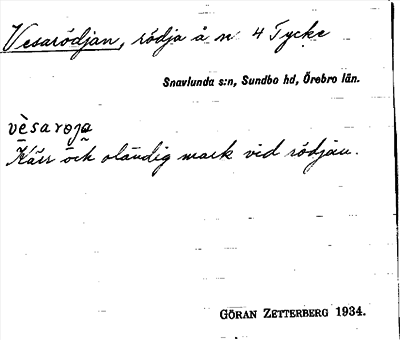 Vesarödjan, rödja å nr 4 Tycke
Snavlunda s:n, Sundbo hd, Örebro län.
vèsarøja
Kärr och oländig mark vid rödjan.
GÖRAN ZETTERBERG 1934.